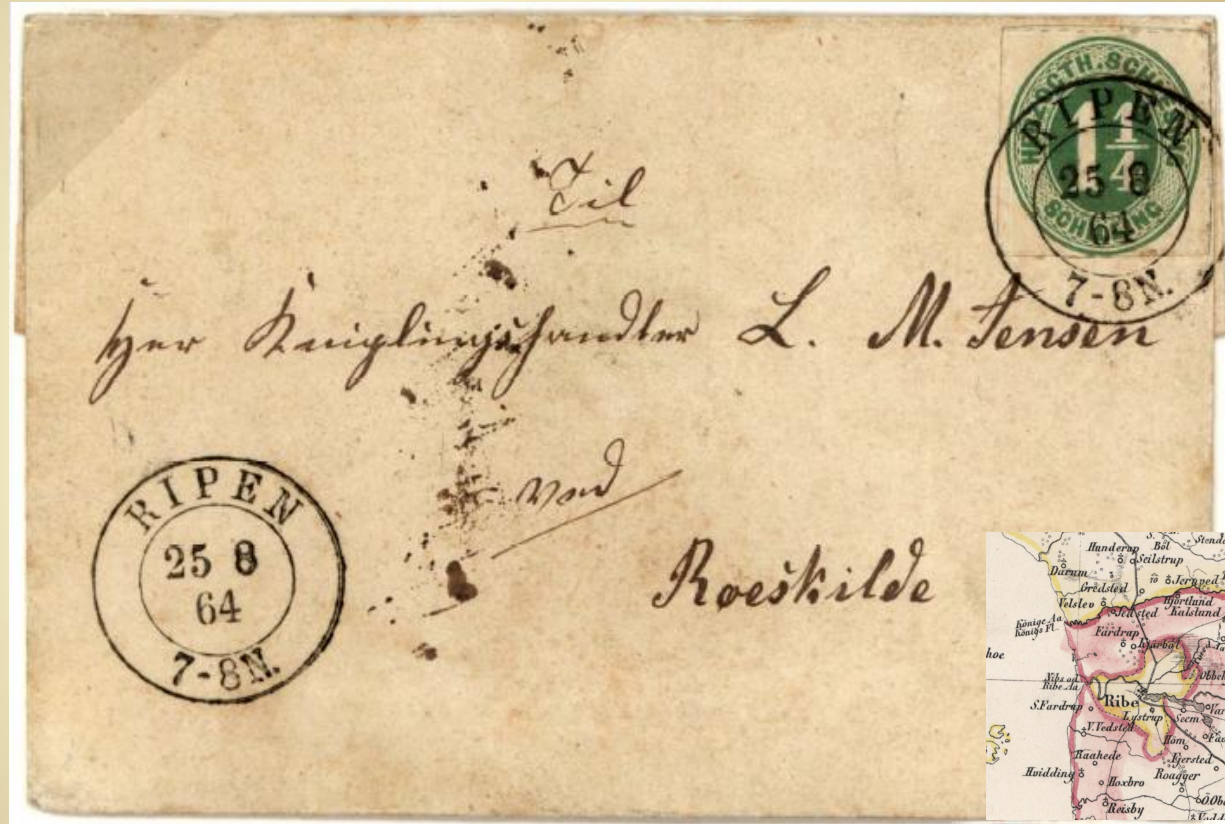 HERZOGTH. SCHLESWIG
1 1/4
SCHILLING
RIPEN
25 8
64
7-8N.
Til
Herr Kniplingshandler L. M. Jensen
ved
Roeskilde
RIPEN
25 8
64
7-8N.
Hunderup
Böl
Seilstrup
Darum
Gredsted
Jernved
Velslev
Jedsted
Hjortlund
Kalslund
Könige Aa
Königs Fl.
Fardrup
Kjarbøl
hoe
Ribe Aa
Ribe
S.Fardrup
Lystrup
Seem
V.Vedsted
Raahede
Hom
Fjersted
Hvidding
Roagger
Hoxbro
Reisby